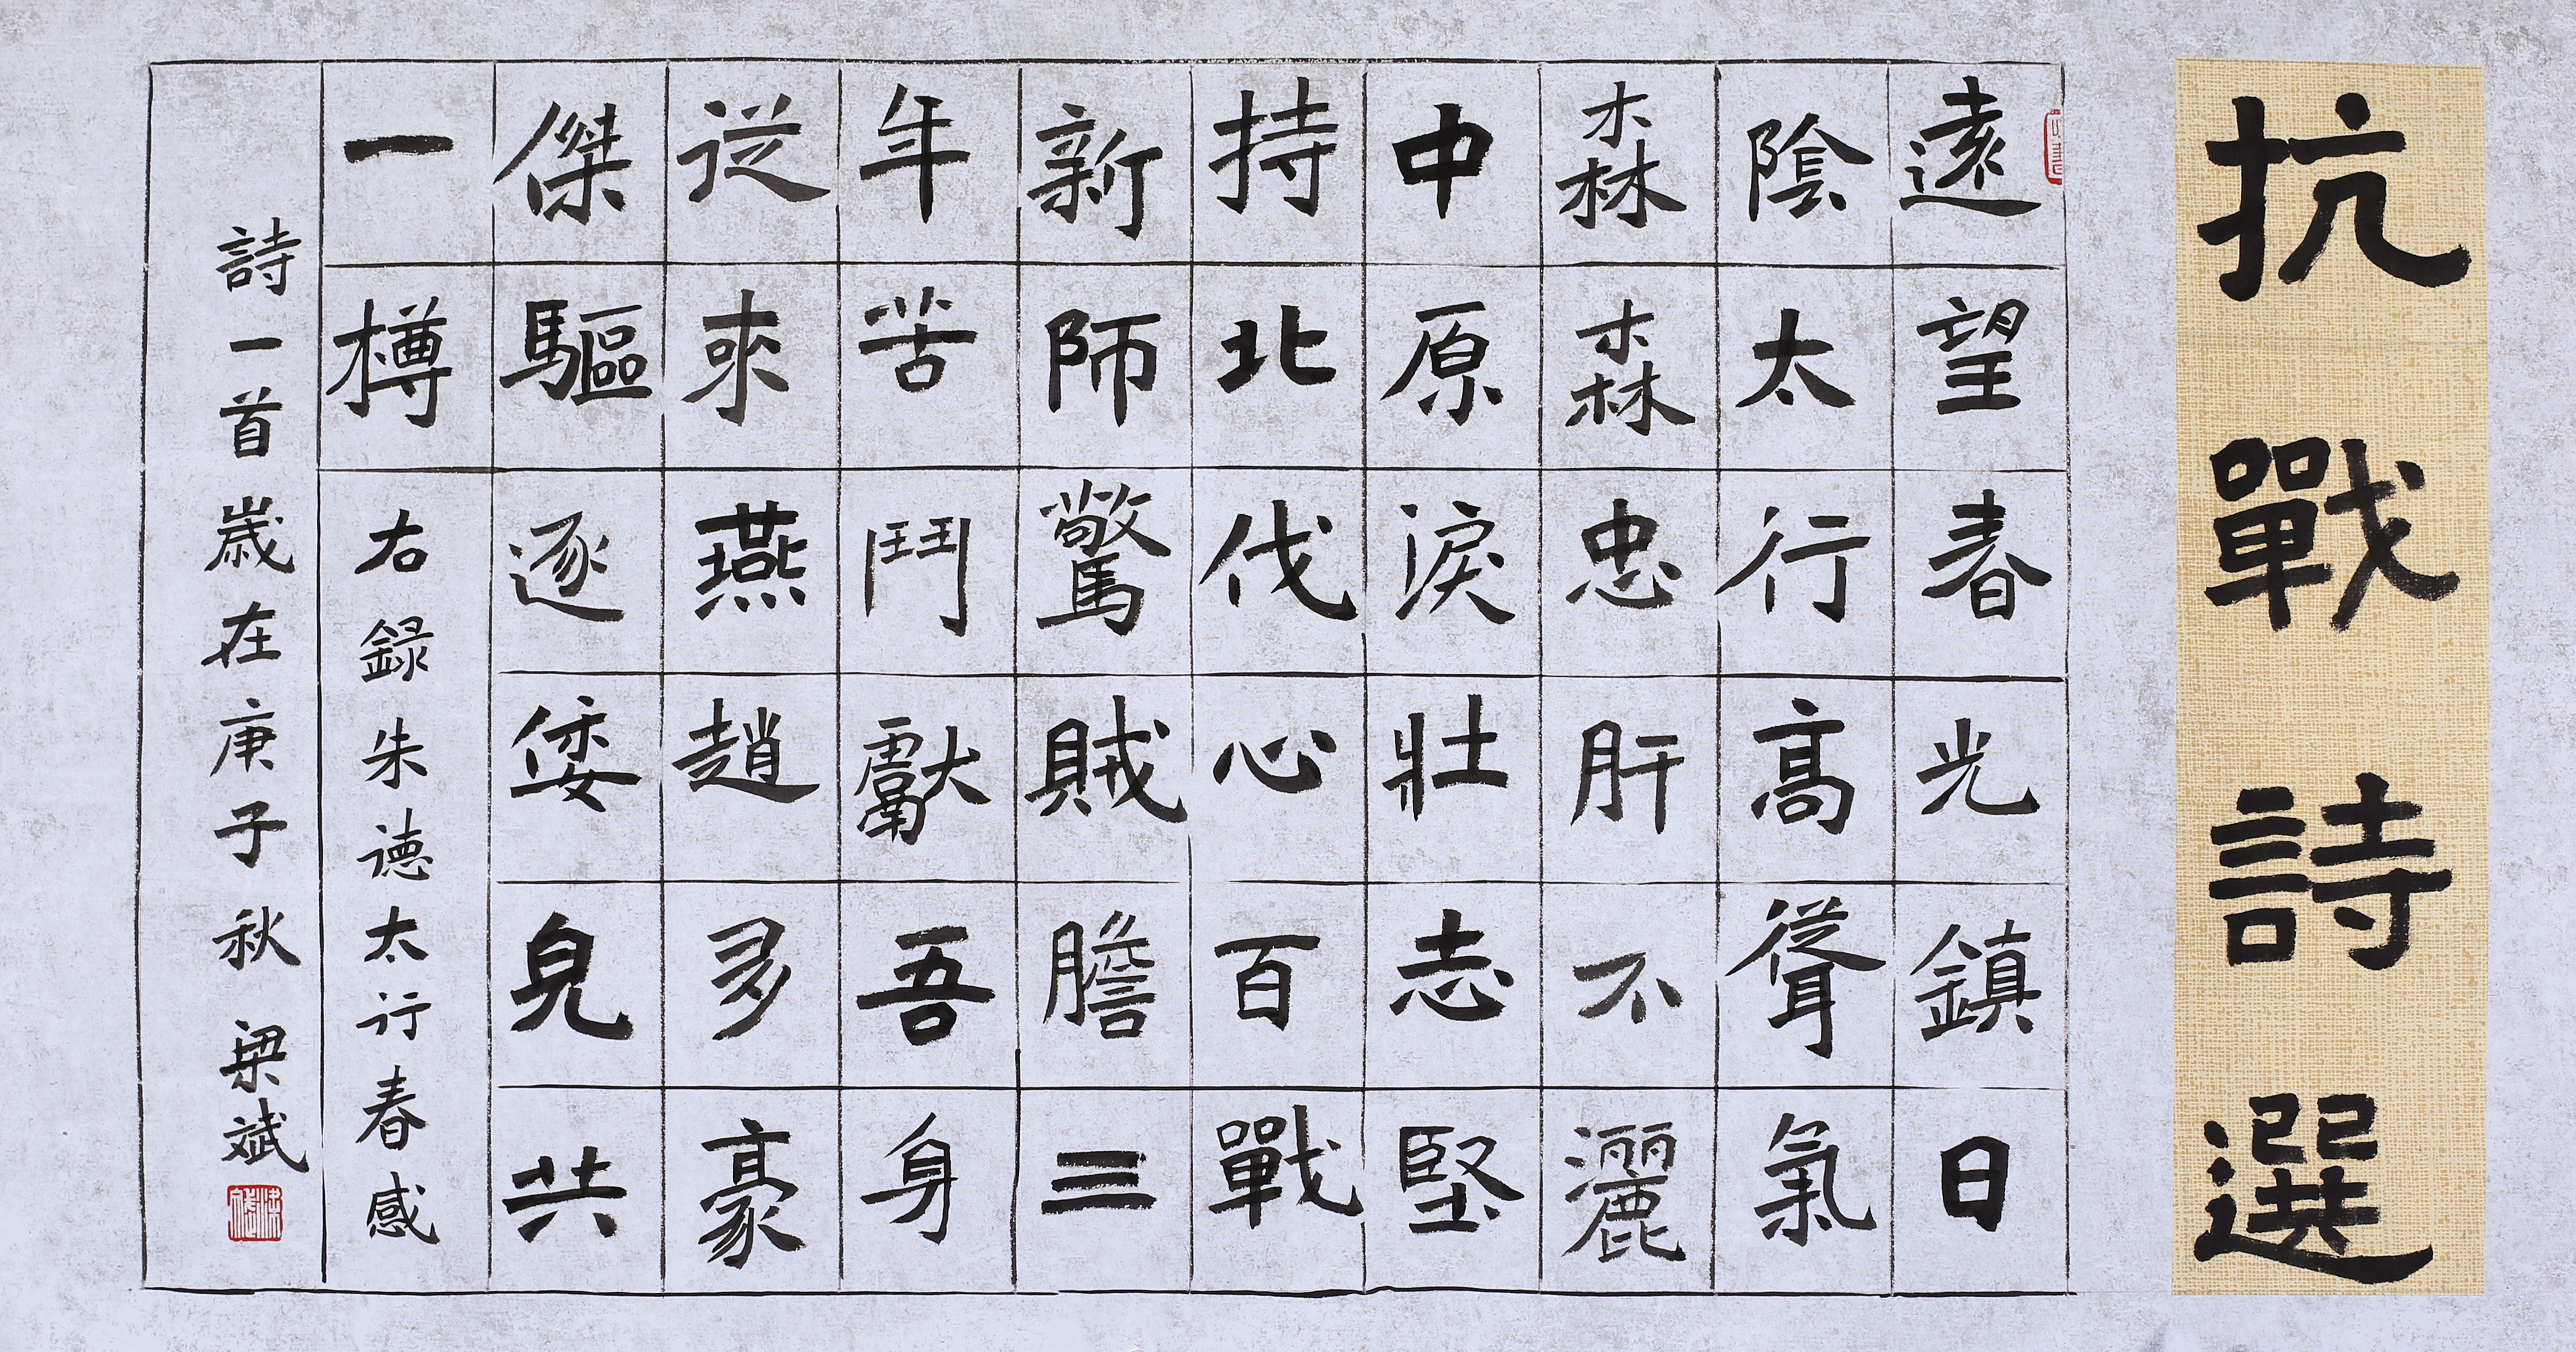 抗戰詩選
遠望春光鎮日
陰太行高聳氣
森森忠肝不灑
中原淚壯志堅
持北伐心百戰
新師驚賊膽三
年苦鬥獻吾身
從來燕趙多豪
傑驅逐倭兒共
一樽
右録朱德太行春感
詩一首歲在庚子秋 梁斌